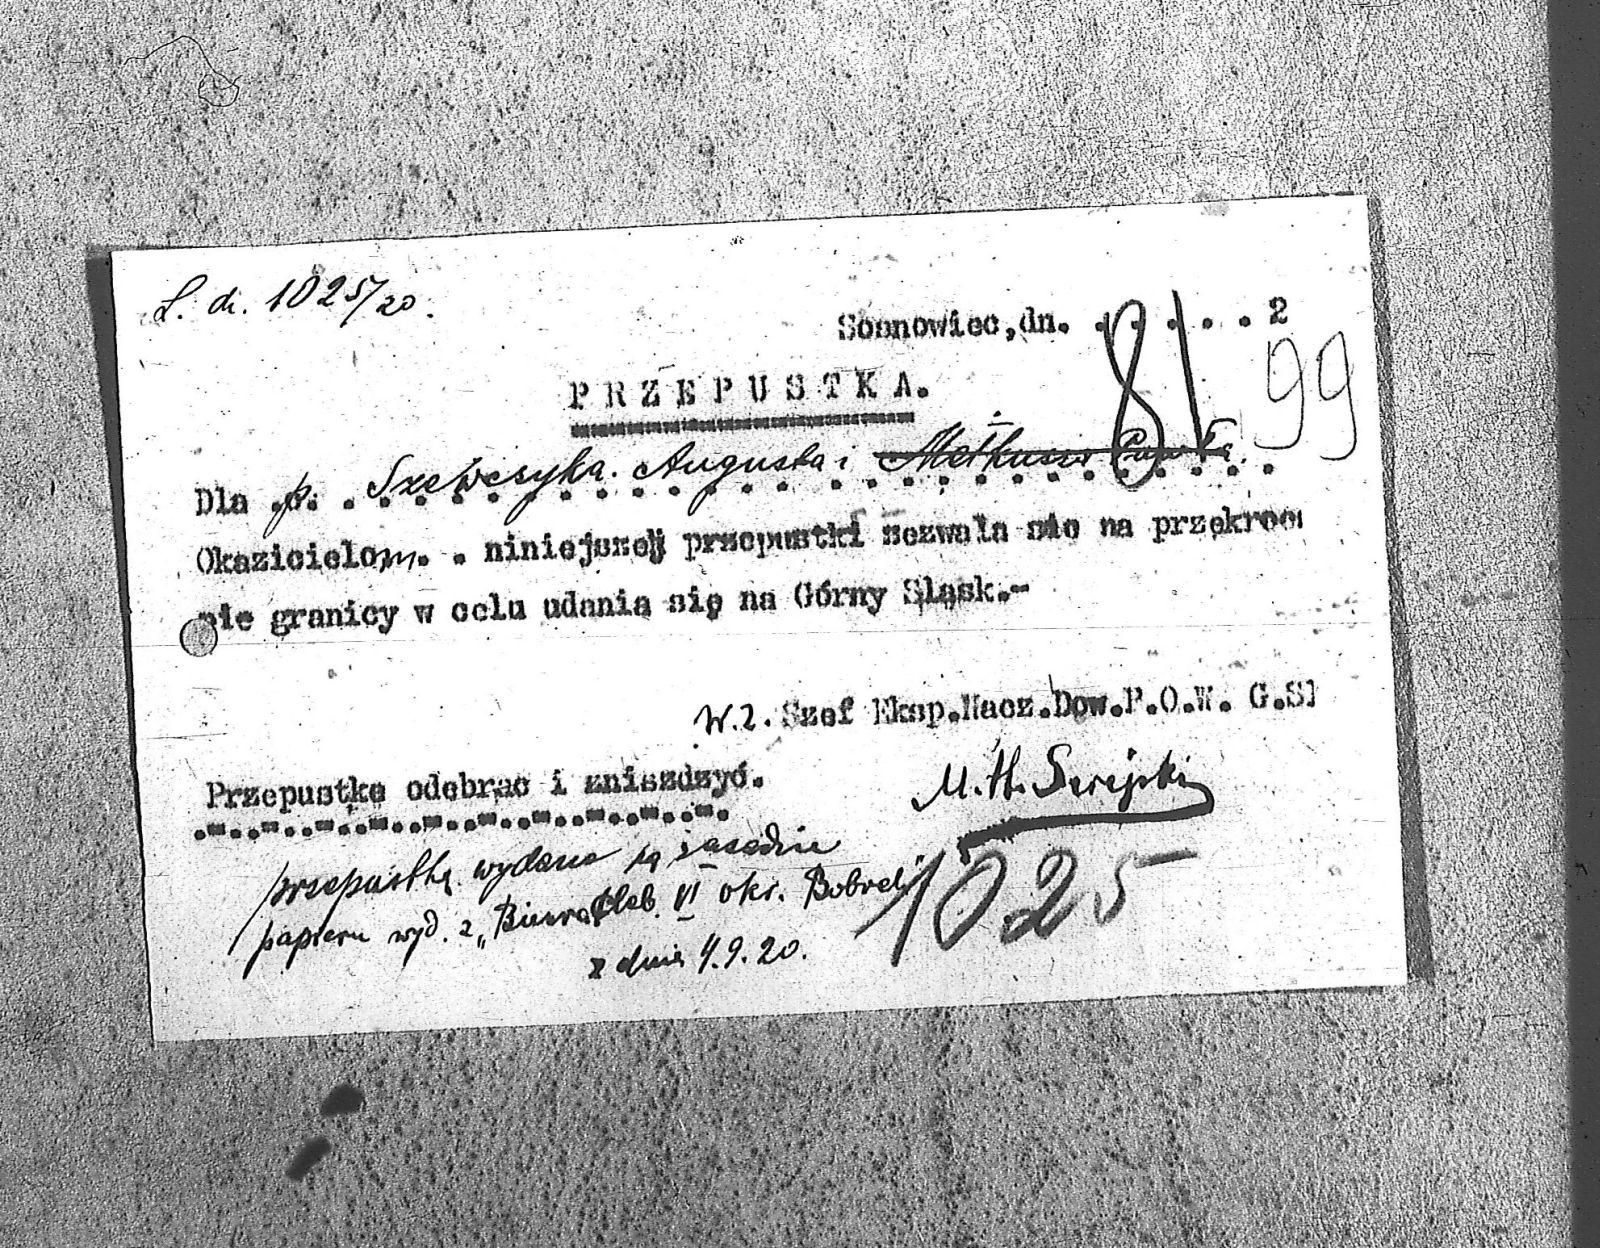 L. dz. 1025/20.
Sosnowiec,dn. . . . . . 2
81
99
PRZEPUSTKA.
Dla p. Szewczyka Augusta i
Okazicielom. . niniejszej przepustki zezwala sie na przekroc
nie granicy w celu udania się na Górny Sląsk.-
W.z. Szef Eksp.Nacz.Dow.P.O.W. G.Sl
Przepustkę odebrac i zniszdzyć.
przepustka wydana są zasadzie
papieru wyd. z „Biura VI okr. Bobrek"
z dnia 4.9.20.
1025